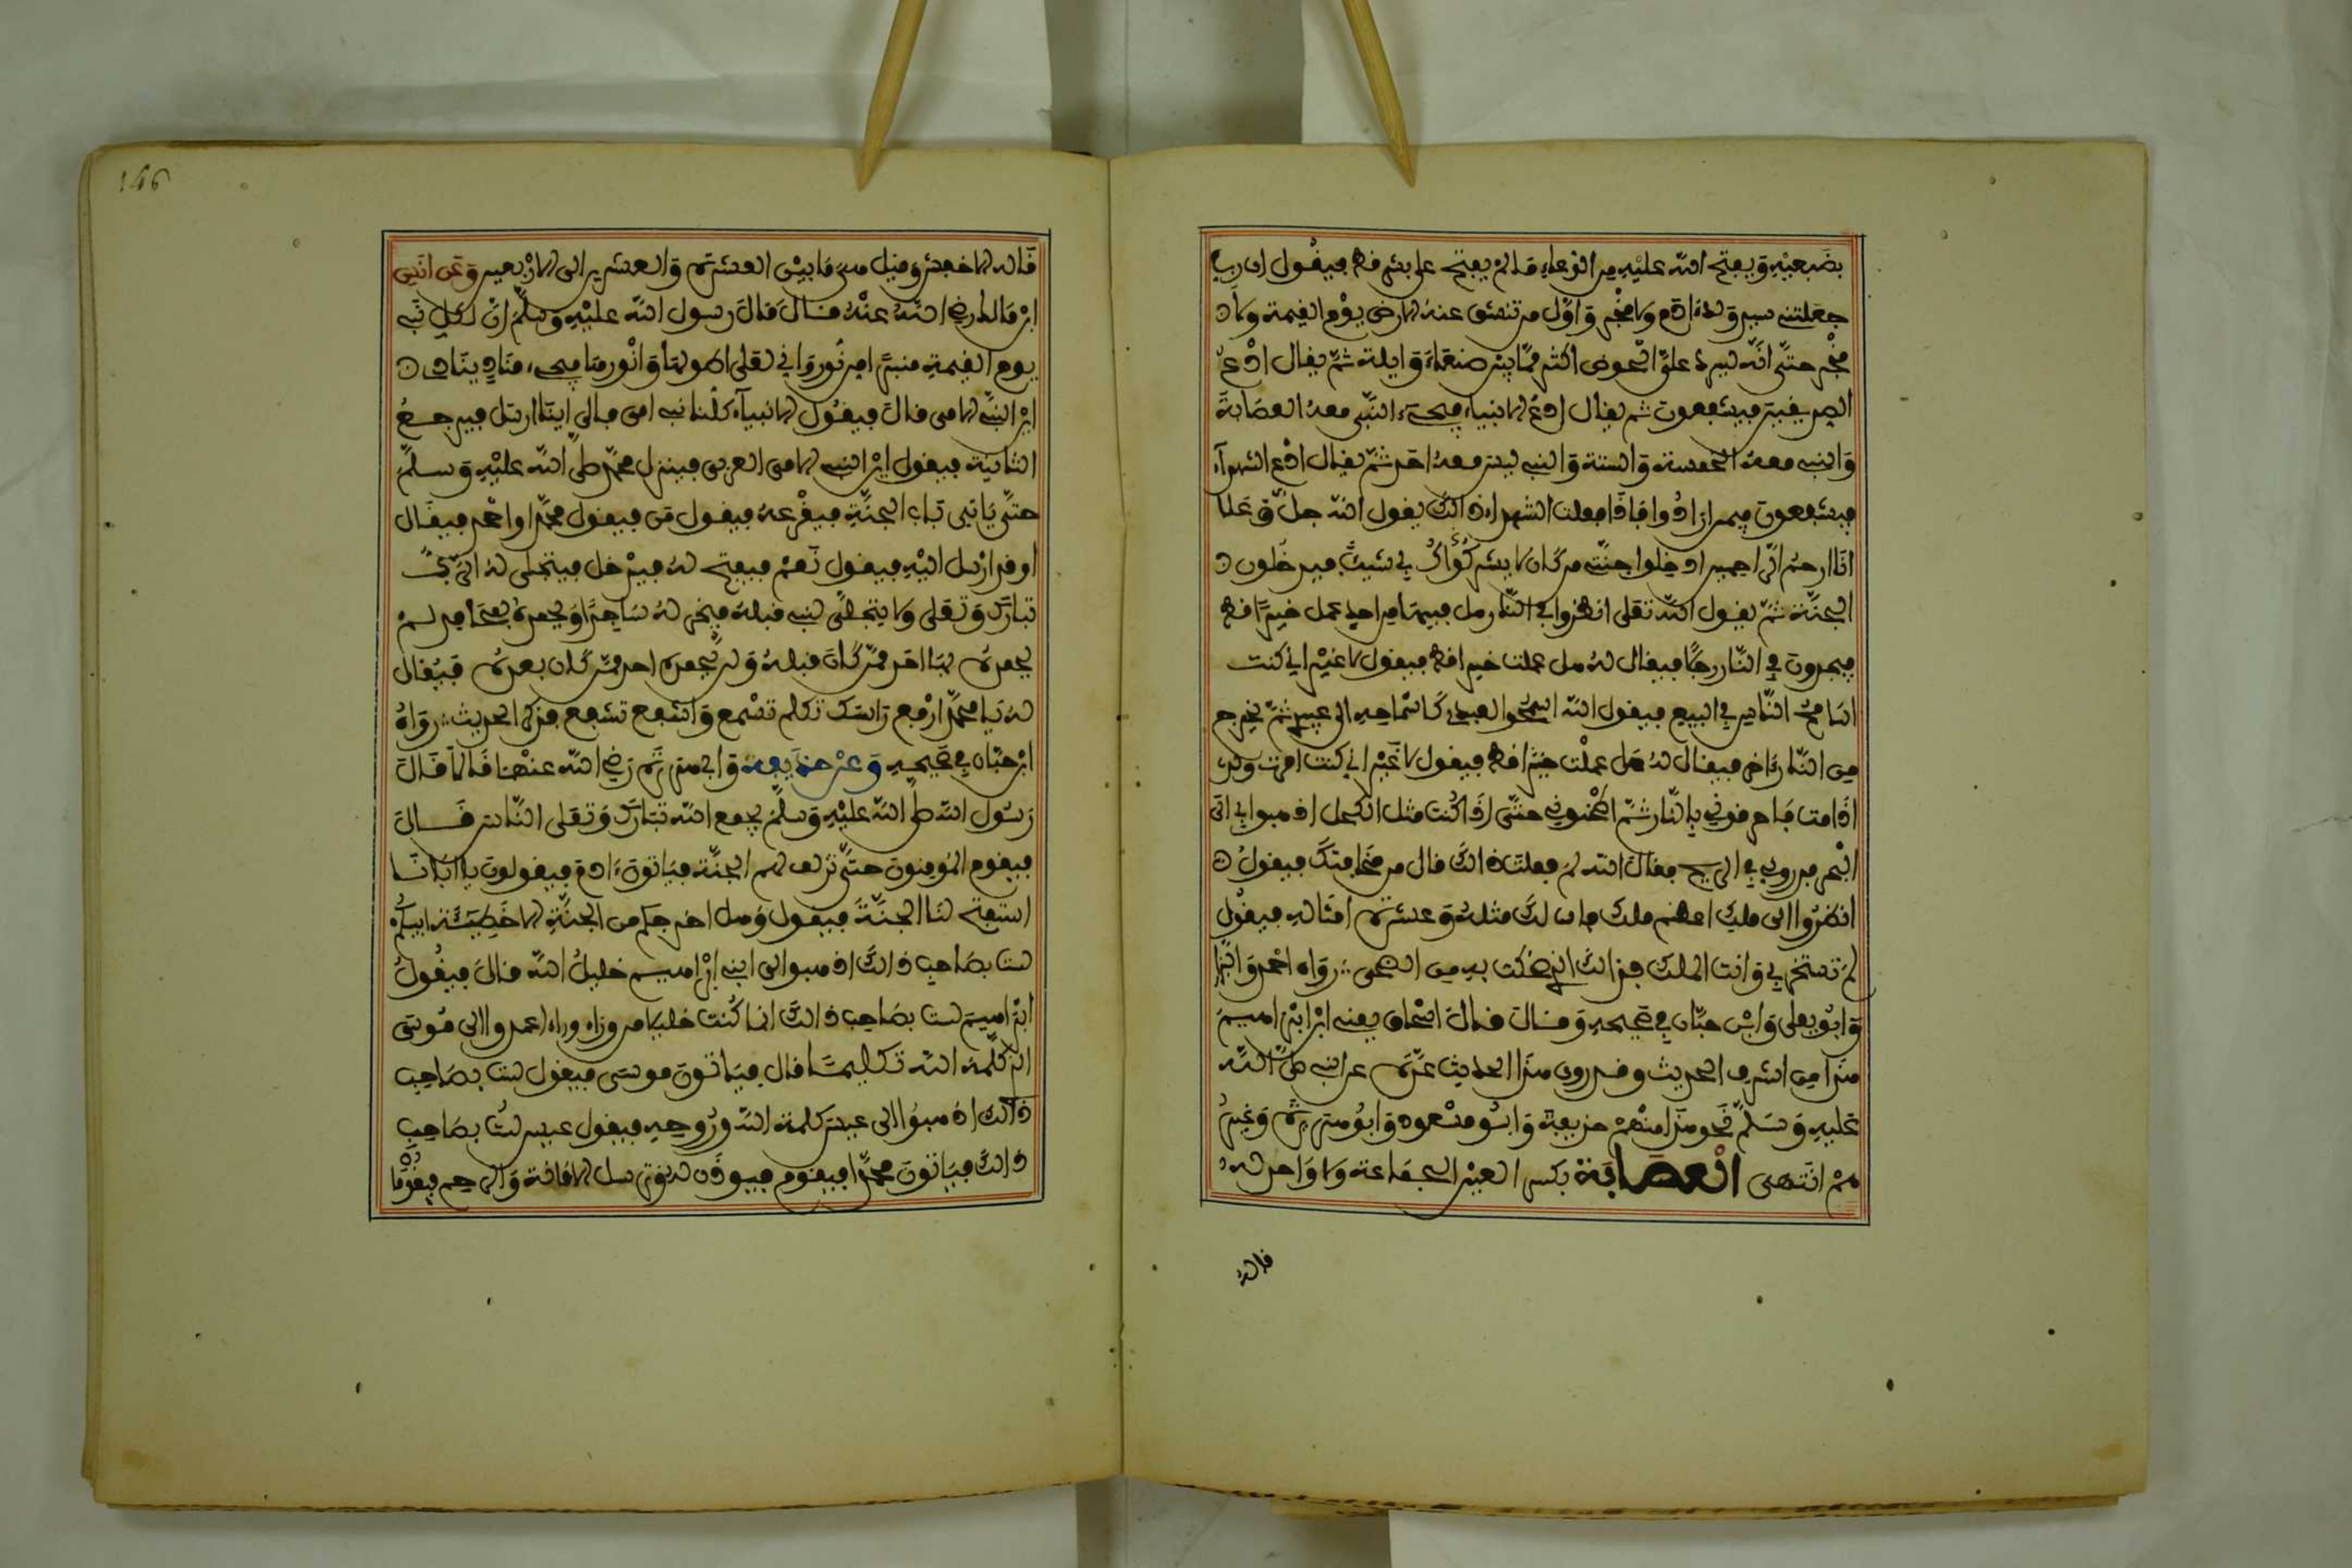 بضبعيه ويفتح الله عليه من الدعاء ما لم يفتح على بشر فط فيقول اى رب
جعلتنى سيد ولد ءادم ولا فخر واول من تنشق عنه الارض يوم القيمة ولا
فخر حتى انه ليرد على الحوض اكثر مما بين صنعاء وايلة ثم يقال ادع
الصديقين فيشفعون ثم يقال ادع الانبياء فيجىء النبى معه العصابة
والنبى معه الخمسة والستة والنبى ليس معه احد ثم يقال ادع الشهدآء
فيشفعون فيمن ارادوا فاذا فعلت الشهداء ذالك يقول الله جل وعلا
انا ارحم الراحمين ادخلوا جنتى من كان لا يشرك بى شيئا فيدخلون
الجنة ثم يقول الله تعلى انظروا فى النار هل فيها من احد عمل خيرا فط
فيجدون فى النار رجلا فيقال له هل عملت خيرا فط فيقول لا غير انى كنت
اسامح الناس فى البيع فيقول الله اسمحوا لعبدى كاسماحه الى عبيدى ثم يخرج
من النار ءاخر فيقال له هل عملت خيرا فط فيقول لا غير انى كنت امرت ولدى
اذا مت فاحرقونى بالنار ثم اطحنونى حتى اذا كنت مثل الكحل اذهبوا بى الى
البحر فذرونى فى الريح فقال الله لم فعلت ذالك قال من مخافتك فيقول
انظروا الى ملك اعظم ملك فان لك مثله وعشرة امثاله فيقول
لم تسخر بى وانت الملك فذالك الذى ضحكت به من الضحى رواه احمد والبزار
وابو يعلى وابن حبان فى صحيحه وقال قال اسحاق يعنى ابن ابراهيم
هذا من اشرف الحديث وقد روى هذا الحديث عدة عن النبى صلى الله
عليه وسلم نحو هذا منهم حذيفة وابو مسعود وابو هريرة وغيرهم
انتهى العصابة بكسر العين الجماعة ولا واحد له
قاله
146
قاله الاخفش وقيل هى ما بين العشرة والعشرين الى الاربعين وعن انس
ابن مالك رضى الله عنه قال قال رسول الله عليه وسلم ان لكل نبى
يوم القيمة منبرا من نور وانى لعلى اطولها وانورها فيجىء مناد ينادى
اين النبى الامى قال فيقول الانبيآء كلنا نبى امى فالى اينا ارسل فيرجع
الثانية فيقول اين النبى الامى العربى فينزل محمد صلى الله عليه وسلم
حتى ياتى باب الجنة فيقرعه فيقول من فيقول محمد او احمد فيقال
اوقد ارسل اليه فيقول نعم فيفتح له فيدخل فيتجلى له الرب
تبارك وتعلى ولا يتجلى لنبى قبله فيخر له ساجدا ويحمده بمحامد لم
يحمده بها احد ممن كان قبله ولن يحمده احد ممن كان بعده فيقال
له يا محمد ارفع راسك تكلم تسمع واشفع تشفع فذكر الحديث رواه
ابن حبان فى صحيحه وعن حذيفة وابى هريرة رضى الله عنهما قالا قال
رسول الله صلى الله عليه وسلم يجمع الله تبارك وتعلى الناس قال
فيقوم المؤمنون حتى تزلف لهم الجنة فياتون ءادم فيقولون يا ابانا
استفتح لنا الجنة فيقول وهل اخرجكم من الجنة الا خطيئة ابيكم
لست بصاحب ذالك اذهبوا الى ابنى ابراهيم خليل الله قال فيقول
ابراهيم لست بصاحب ذالك انما كنت خليلا من وراء وراء اعمدوا الى موسى
الذى كلمه الله تكليما قال فياتون موسى فيقول لست بصاحب
ذالك اذهبوا الى عيسى كلمة الله وروحه فيقول عيسى لست بصاحب
ذالك فياتون محمدا فيقوم فيوذن له وترسل الامانة والرحم فيقوما